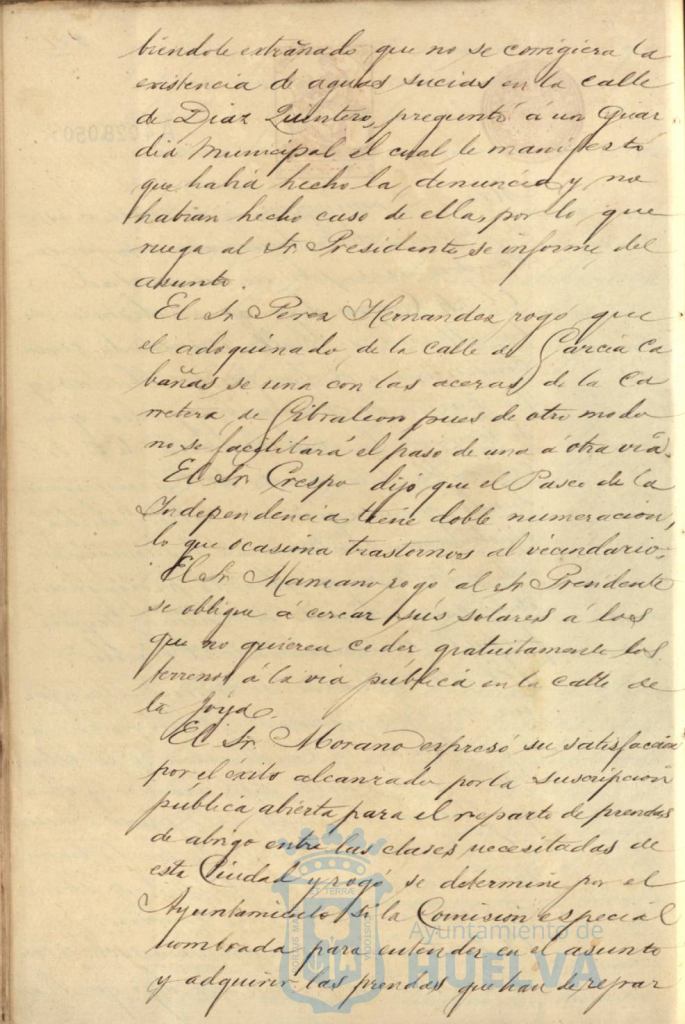 biendole extrañado que no se corrigiera la
existencia de aguas sucias en la calle
de Diaz Quintero, preguntó á un Guar
dia Municipal el cual le manifestó
que habia hecho la denuncia y no
habian hecho caso de ella, por lo que
ruega al Sr. Presidente se informe del
asunto.
El Sr. Perez Hernandez rogó que
el adoquinado de la calle de Garcia Ca
bañas se una con las aceras de la Ca
rretera de Gibraleon pues de otro modo
no se facilitará el paso de una á otra via.
El Sr. Crespo dijo que el Paseo de la
Independencia tiene doble numeracion,
lo que ocasiona trastornos al vecindario.
El Sr. Manzano rogó al Sr. Presidente
se oblique á cercar sus solares á los
que no quieren ceder gratuitamente los
terrenos á la via pública en la calle de
la Joya.
El Sr. Morano expresó su satisfaccion
por el éxito alcanzado por la suscripcion
pública abierta para el reparto de prendas
de abrigo entre las clases necesitadas de
esta Ciudad y rogó se determine por el
Ayuntamiento si la Comision especial
nombrada para entender en el asunto
y adquirir las prendas que han de repar
Ayuntamiento de
HUELVA